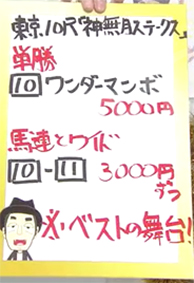 東京10R『神無月ステークス』
単勝
10 ワンダーマンボ
5000円
馬連とワイド
10-11 3000円
ずつ
※ベストの舞台!